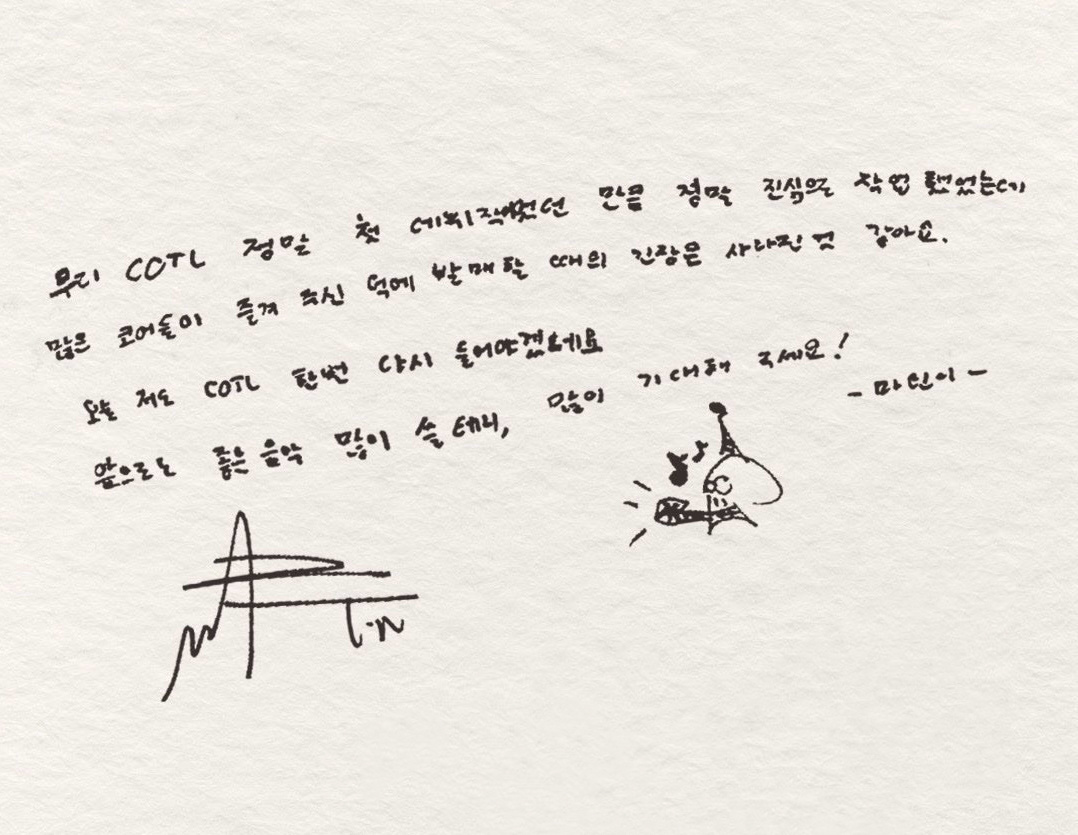 우리 COTL 정말 첫 데뷔작이었던 만큼 정말 진심으로 작업 했었는데
많은 코어들이 즐겨 주신 덕에 발매할 때의 긴장은 사라진 것 같아요.
오늘 저도 COTL 한번 다시 들어야겠네요
앞으로도 좋은 음악 많이 쓸 테니, 많이 기대해 주세요!
- 마틴이 -